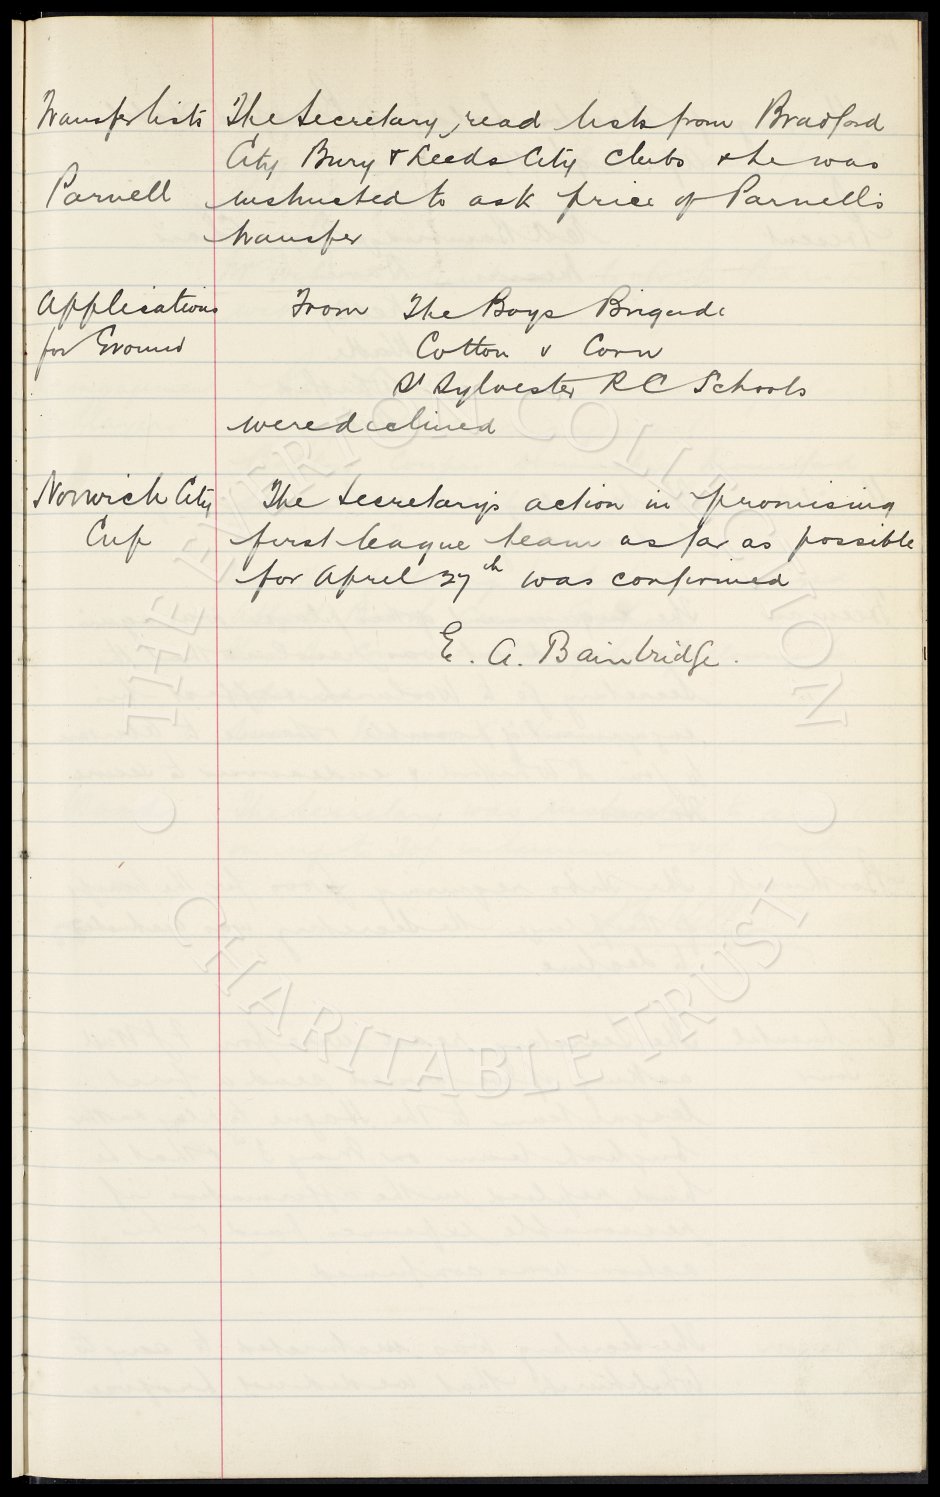 Transfer lists The Secretary read lists from Bradford
City Bury & Leeds City clubs & he was
Parnell instructed to ask price of Parnell's
transfer
Applications From The Boys Brigade
for Ground Cotton & Corn
St Sylvester RC Schools
were declined
Norwich City The Secretary's action in promising
Cup first league team as far as possible
for April 27th was confirmed
E. A. Bainbridge.
THE EVERTON COLLECTION
CHARITABLE TRUST